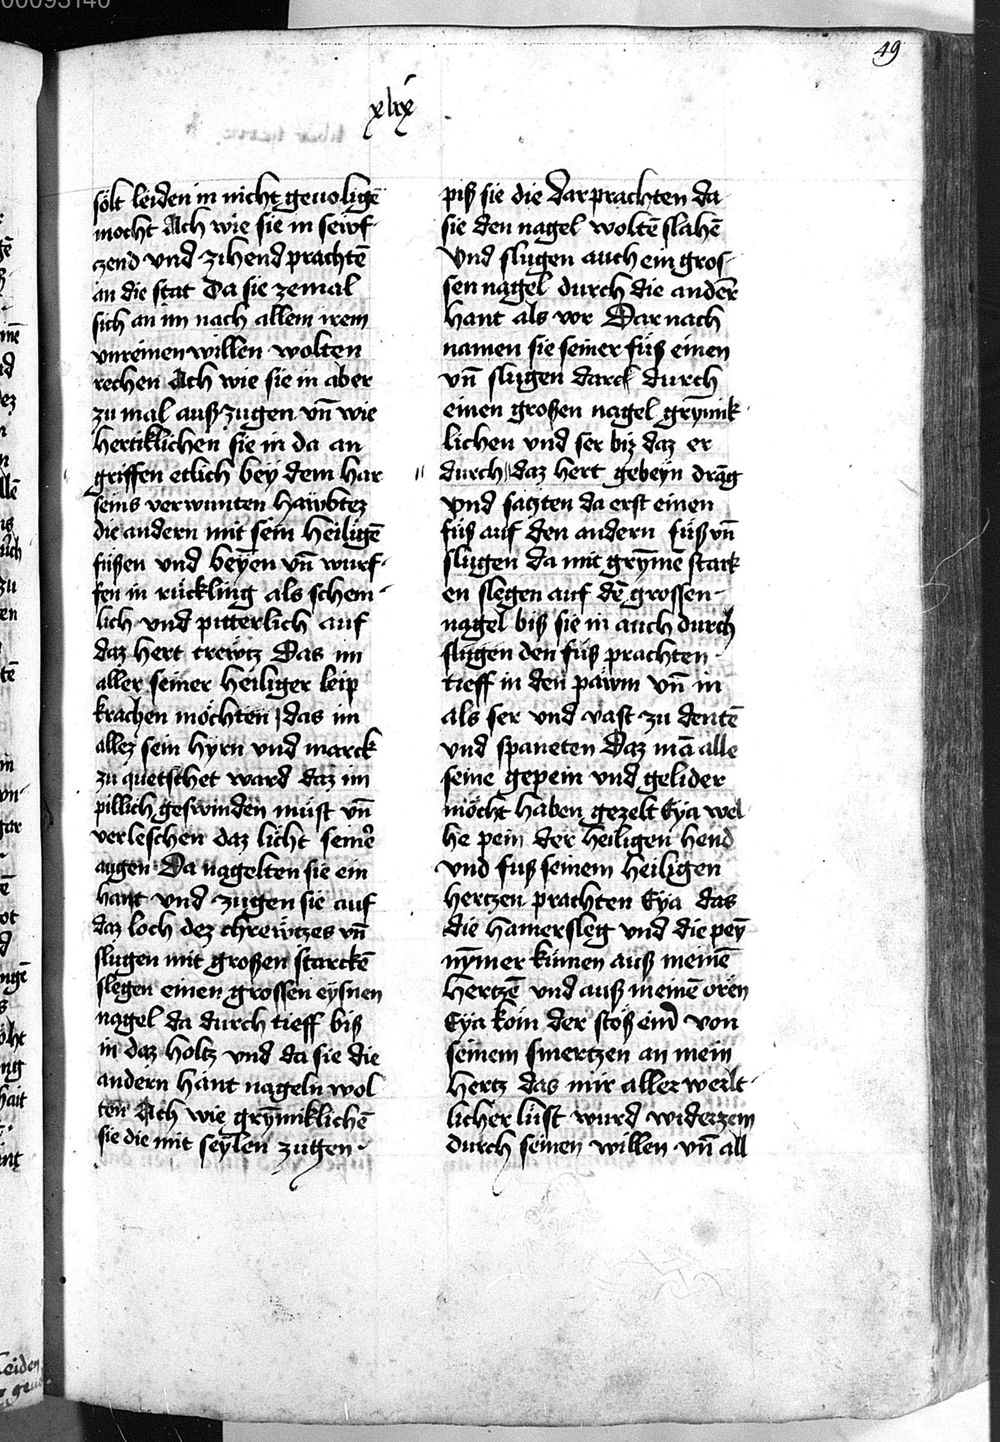 49
xlix
sölt leiden in nicht geuolige͂
mocht Ach wie sie in seinf-
czend vnd zihend prachte͂
an die stat Da sie zemal
sich an im nach allem irem
vnreinen willen wolten
rechen Ach wie sie in aber
zu mal auß zugen vn͂ wie
hertiklichen sie in da an
griffen etlich bey dem har
seins verwunten haẅbtez
die andern mit sein heilige͂
füßen vnd beyen vn͂ wurf-
fen in rückling als schem-
lich vnd pitterlich auf
daz hert crewtz Das im
aller seiner heiliger leip
krachen möchten das im
allez sein hyrn vnd marck
zu quetschet ward daz im
pillich geswinden müst vn͂
verleschen daz licht seiner
augen Da nagelten sie ein
hant vnd zugen sie auf
daz loch dez chrewtzes vn͂
slugen mit großen starcke͂
slegen einen grossen eysnen
nagel da durch tieff biß
in daz holtz vnd da sie die
andern hant nageln wol
ten Ach wie grymikliche͂
sie die mit seylen zugen
piß sie die dar prachten da
sie den nagel wolte͂ slahe͂
Vnd slugen auch ein gros-
sen nagel durch die ander
hant als vor Dar nach
namen sie seiner füß einen
vn͂ slugen darck durch
einen großen nagel grymik
lichen vnd ser biz daz er
durch daz hert gebeyn drag
vnd satzten da erst einen
füß auf den andern füß vn͂
slugen da mit gryme͂ stark
en slegen auf de͂ grossen
nagel biß sie in auch durch
slugen den füß prachten
tieff in den paẅm vn͂ in
als ser vnd vast zu dente͂
vnd spaneten Daz ma͂ alle
seine gepein vnd gelider
möcht haben gezelt Eya wel
he pein der heiligen hend
vnd fuß seinem heiligen
hertzen prachten Eya das
die hamersleg vnd die pey͂
nymer kümen auß meine͂
hertze͂ vnd auß meine͂ oren
Eya kom der stoß eind von
seinem smertzen an mein
hertz das mir aller werlt
licher lüst wurd widerzem
durch seinen willen vn͂ all